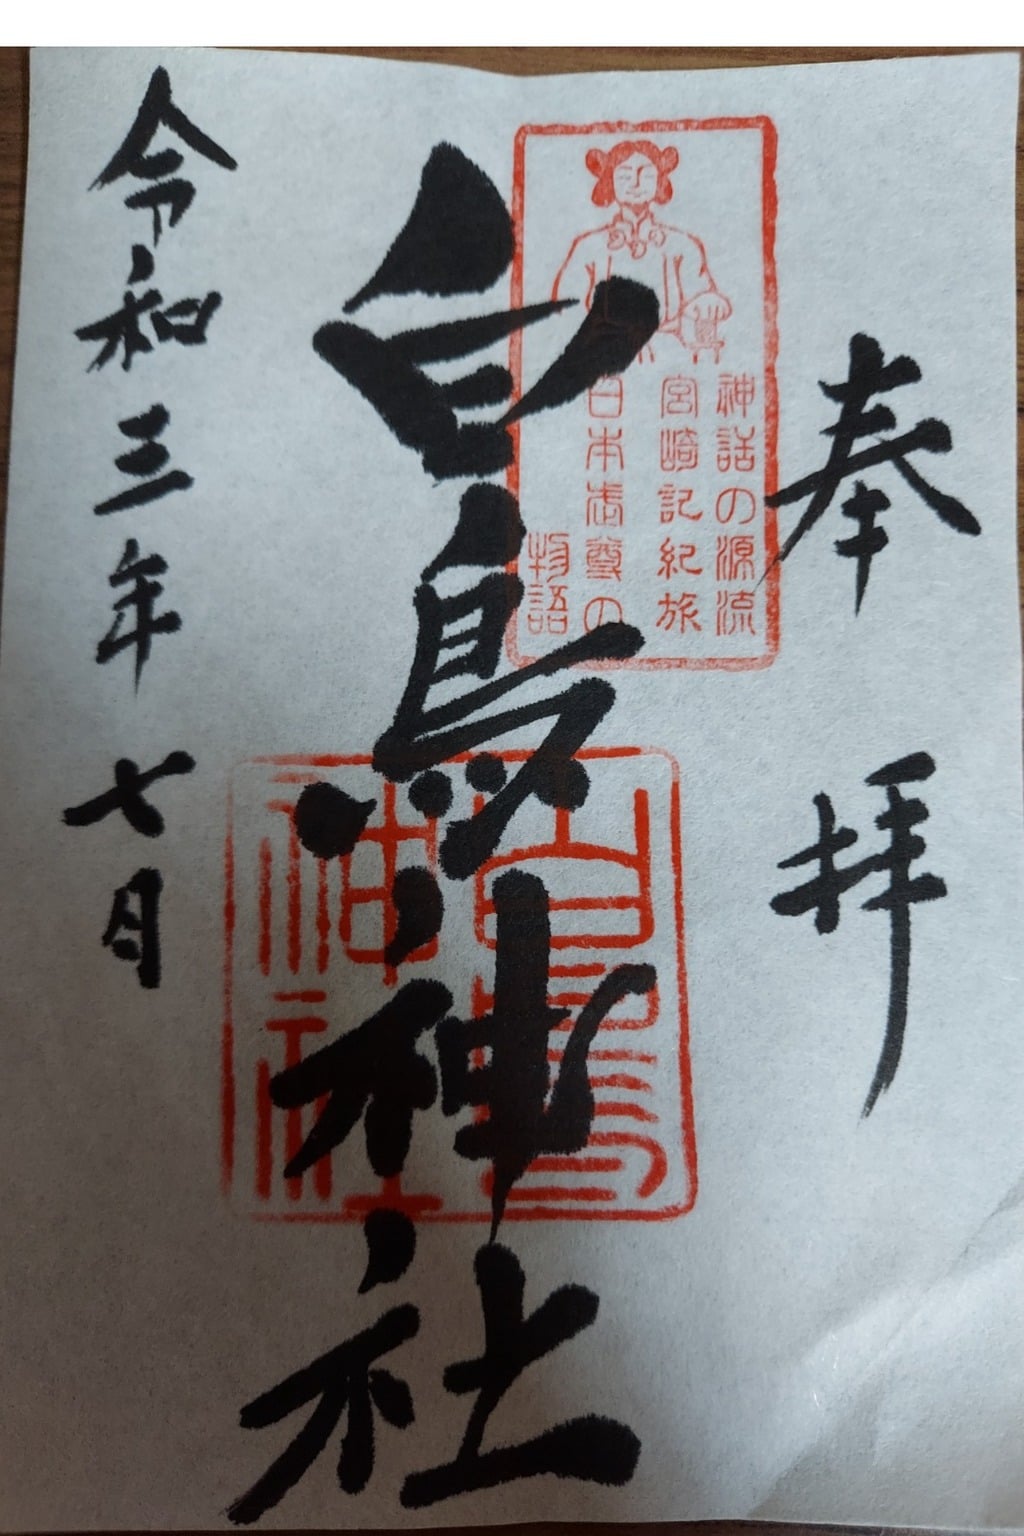 奉拝
神話の源流
宮崎記紀旅
日本武尊の
物語
白鳥神社
白鳥
神社
令和三年七月